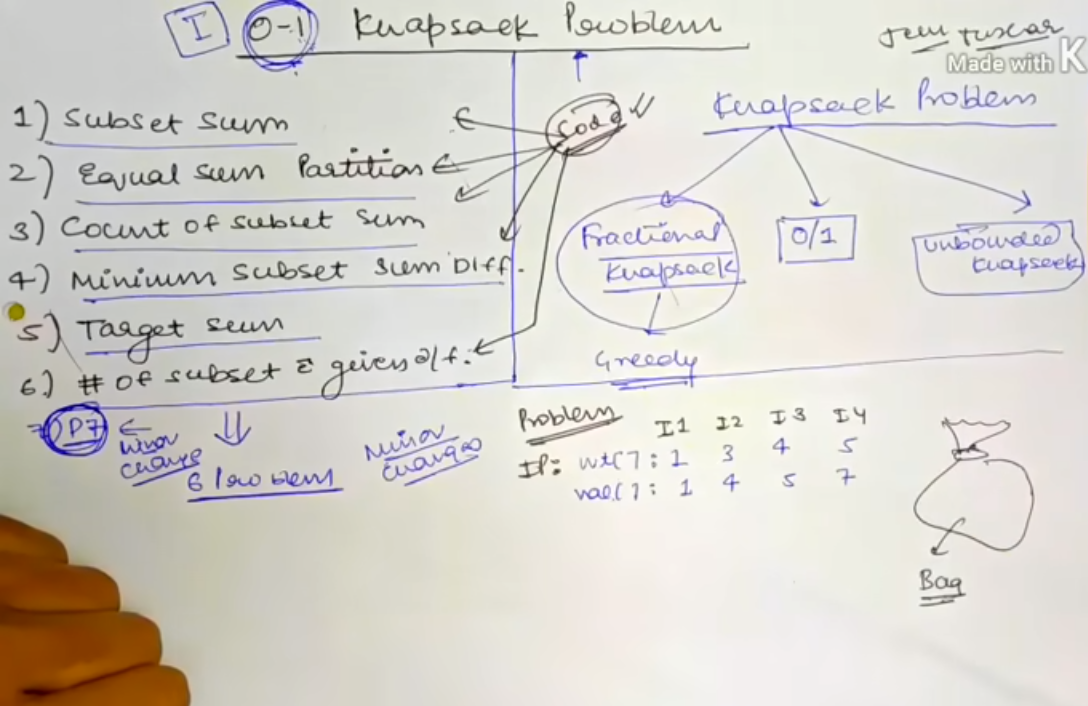 I 0-1 Knapsack Problem
Made with K
1) Subset sum
2) Equal sum Partition
3) Count of subset sum
4) Minimum subset sum Diff.
5) Target sum
6) # of subset given diff.
P7
minor change
6 Problems
minor changes
Code
Knapsack Problem
Fractional Knapsack
0/1
unbounded Knapsack
Greedy
Problem
I1 I2 I3 I4
IP: wt[]: 1 3 4 5
val[]: 1 4 5 7
Bag